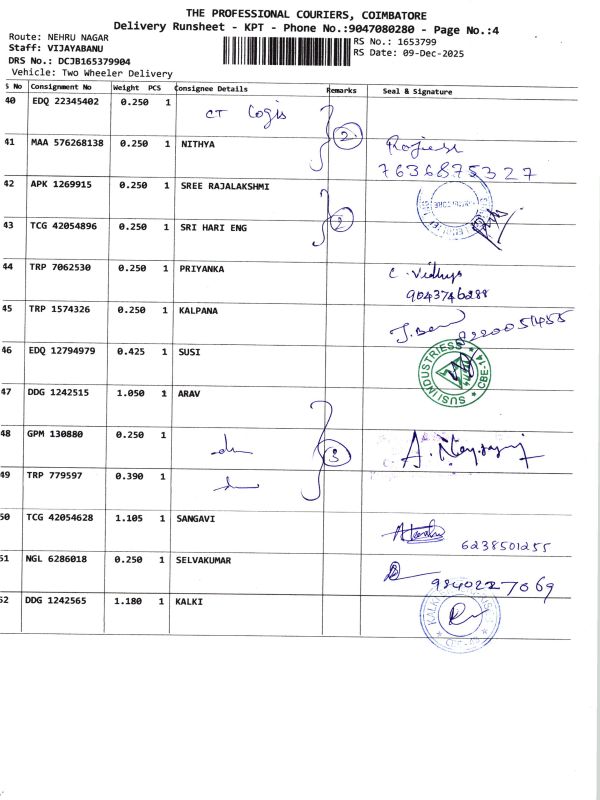 THE PROFESSIONAL COURIERS, COIMBATORE
Delivery Runsheet - KPT - Phone No.:9047080280 - Page No.:4
Route: NEHRU NAGAR
RS No.: 1653799
Staff: VIJAYABANU
RS Date: 09-Dec-2025
DRS No.: DCJB165379904
Vehicle: Two Wheeler Delivery
S No Consignment No Weight PCS Consignee Details Remarks Seal & Signature
40 EDQ 22345402 0.250 1 CT Logis 2
41 MAA 576268138 0.250 1 NITHYA
7636875327
42 APK 1269915 0.250 1 SREE RAJALAKSHMI 2
43 TCG 42054896 0.250 1 SRI HARI ENG
44 TRP 7062530 0.250 1 PRIYANKA C. Vidhya
9043746288
45 TRP 1574326 0.250 1 KALPANA
46 EDQ 12794979 0.425 1 SUSI SUSI INDUSTRIESS CBE-14
47 DDG 1242515 1.050 1 ARAV
48 GPM 130880 0.250 1 3
49 TRP 779597 0.390 1
50 TCG 42054628 1.105 1 SANGAVI
6238501255
51 NGL 6286018 0.250 1 SELVAKUMAR 9840227069
52 DDG 1242565 1.180 1 KALKI